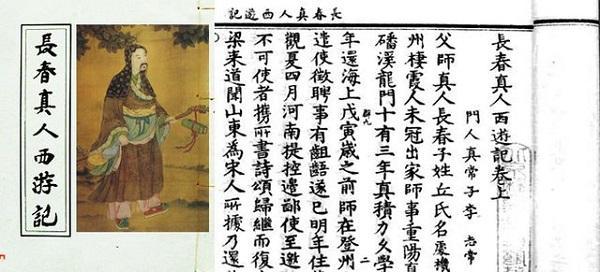 長春真人西游記
長春真人西遊記
長春真人西遊記卷上
門人真常子李志常
父師真人長春子姓丘氏名處機
州棲霞人未冠出家師事重陽真
磻溪龍門十有三年真積力久學
群九
二
年還海上戊寅歲之前師在登州
遣使徵聘事有齟齬遂已明年住
觀夏四月河南提控邊鄙使至邀
不可使者攜所書詩頌歸繼而復
梁來道聞山東為宋人所據乃還